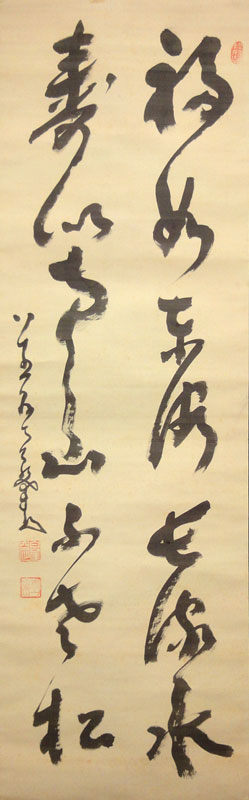 福如東海長流水
壽似南山不老松